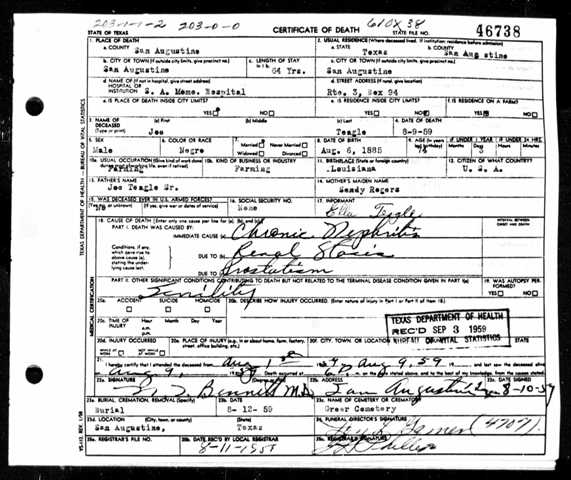 203-1-1-2 203-0-0 610X 38
STATE OF TEXAS CERTIFICATE OF DEATH 46738
1. PLACE OF DEATH
a. COUNTY San Augustine
2. USUAL RESIDENCE (Where deceased lived. If institution: residence before admission)
a. STATE Texas b. COUNTY San Augustine
b. CITY OR TOWN (If outside city limits, give precinct no.) San Augustine
c. LENGTH OF STAY 64 Yrs.
c. CITY OR TOWN (If outside city limits, give precinct no.) San Augustine
d. NAME OF (If not in hospital, give street address) HOSPITAL OR INSTITUTION S. A. Mem. Hospital
d. STREET ADDRESS (If rural, give location) Rte. 3, Box 94
e. IS PLACE OF DEATH INSIDE CITY LIMITS? YES NO
e. IS RESIDENCE INSIDE CITY LIMITS? YES NO
f. IS RESIDENCE ON A FARM? YES NO
3. NAME OF DECEASED (Type or print) (a) First Joe (b) Middle (c) Last Teagle
4. DATE OF DEATH 8-9-59
5. SEX Male
6. COLOR OR RACE Negro
7. Married Never Married Widowed Divorced
8. DATE OF BIRTH Aug. 6, 1885
9. AGE 74 IF UNDER 1 YEAR 3 IF UNDER 24 HRS.
10a. USUAL OCCUPATION (Give kind of work done during most of working life, even if retired) Farming
10b. KIND OF BUSINESS OR INDUSTRY Farming
11. BIRTHPLACE (State or foreign country) Louisiana
12. CITIZEN OF WHAT COUNTRY? U. S. A.
13. FATHER'S NAME Joe Teagle Sr.
14. MOTHER'S MAIDEN NAME Sandy Rogers
15. WAS DECEASED EVER IN U.S. ARMED FORCES? (If yes, give war or dates of service) No
16. SOCIAL SECURITY NO. None
17. INFORMANT Ella Teagle
18. CAUSE OF DEATH [Enter only one cause per line for (a), (b), and (c).]
INTERVAL BETWEEN ONSET AND DEATH
PART I. DEATH WAS CAUSED BY:
IMMEDIATE CAUSE (a) Chronic Nephritis
Conditions, if any, which gave rise to above cause (a), stating the underlying cause last.
DUE TO (b) Renal Stasis
DUE TO (c) Prostatism
PART II. OTHER SIGNIFICANT CONDITIONS CONTRIBUTING TO DEATH BUT NOT RELATED TO THE TERMINAL DISEASE CONDITION GIVEN IN PART I (a)
Senility
19. WAS AUTOPSY PERFORMED? YES NO
20a. ACCIDENT SUICIDE HOMICIDE
20b. DESCRIBE HOW INJURY OCCURRED. (Enter nature of injury in Part I or Part II of item 18)
20c. TIME OF INJURY Hour Month Day Year a.m. p.m.
TEXAS DEPARTMENT OF HEALTH
REC'D SEP 3 1959
BUREAU OF VITAL STATISTICS
20d. INJURY OCCURRED WHILE AT WORK NOT WHILE AT WORK
20e. PLACE OF INJURY (e.g., in or about home, farm, factory, street, office building, etc.)
20f. CITY, TOWN, OR LOCATION
21. I hereby certify that I attended the deceased from Aug 1 59 to Aug 9, 59
Aug 9 Death occurred at
22a. SIGNATURE Bennett M.D. (Degree or title)
22b. ADDRESS San Augustine
22c. DATE SIGNED 8-10-59
23a. BURIAL, CREMATION, REMOVAL (Specify) Burial
23b. DATE 8-12-59
23c. NAME OF CEMETERY OR CREMATORY Greer Cemetery
23d. LOCATION (City, town, or county) (State) San Augustine, Texas
24. FUNERAL DIRECTOR'S SIGNATURE (4707)
25a. REGISTRAR'S FILE NO.
25b. DATE REC'D BY LOCAL REGISTRAR 8-11-1959
25c. REGISTRAR'S SIGNATURE Phillips